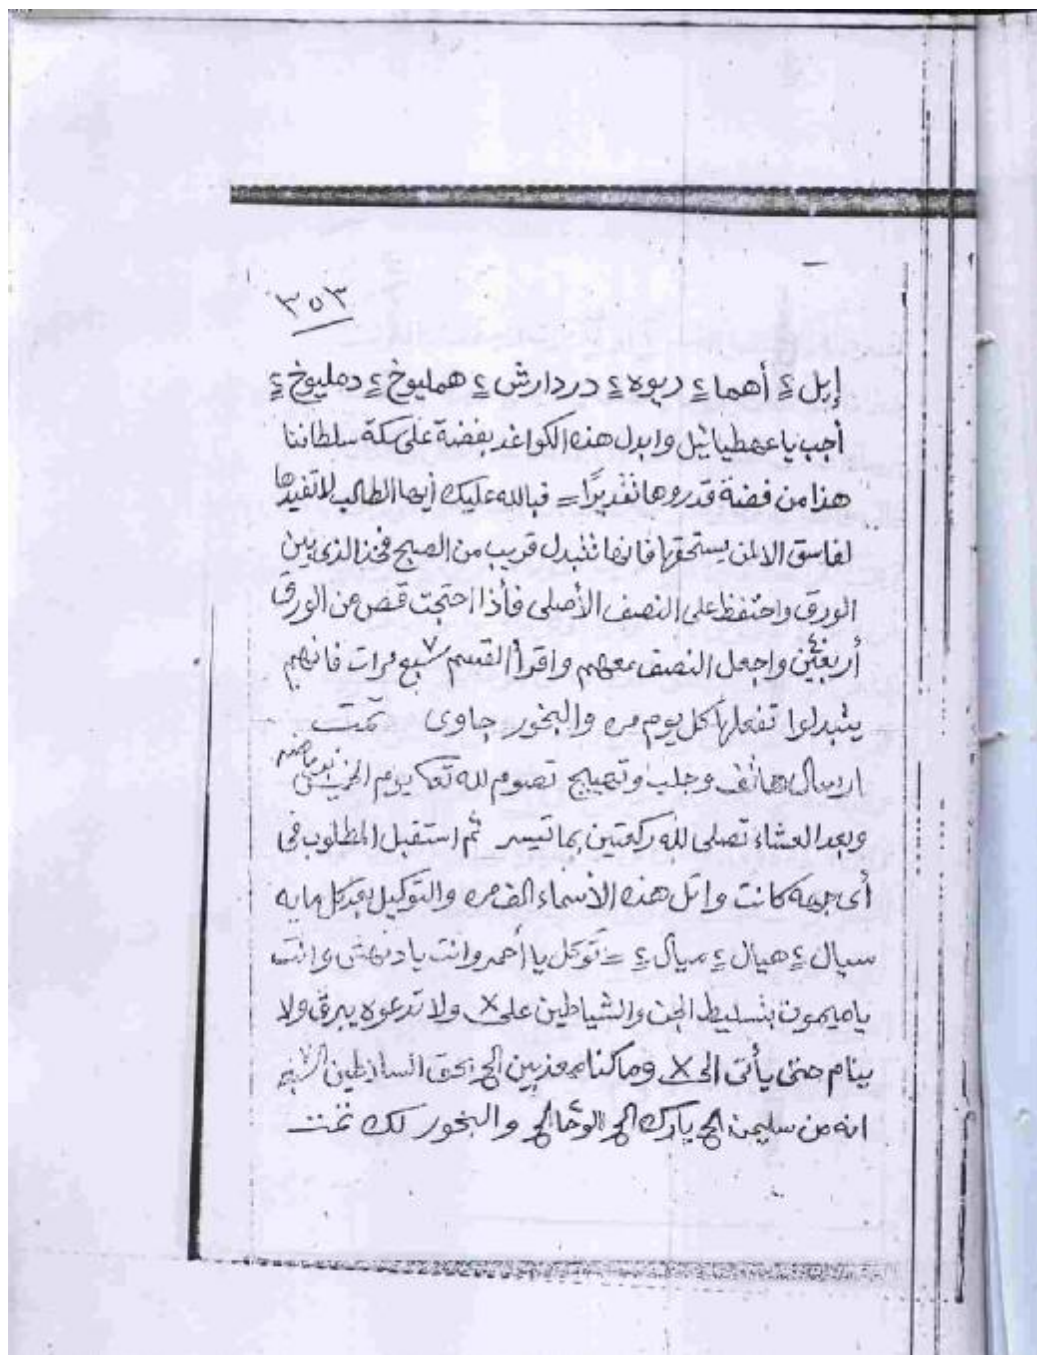 ٣٥٣
إبل ٤ أهما ٤ ريوه ٤ دردارش ٤ همليوخ ٤ دمليوخ ٤
أجب يا عهطيائيل وابدل هذه الكواغد بفضة على سكة سلطاننا
هذا من فضة قدروها تقديرًا = فبالله عليك أيها الطالب لا تفيدها
لفاسق الا لمن يستحقها فانها تتبدل قريب من الصبح فخذ الذى بين
الورق واحتفظ على النصف الأصلى فأذا احتجت قص من الورق
أربعين واجعل النصف معهم واقرأ القسم سبع ٧ مرات فانهم
يتبدلوا تفعلها كل يوم مره والبخور جاوى تمت
ارسال هاتف وجلب وتهييج تصوم لله تعا يوم
وبعد العشاء تصلى لله ركعتين بما تيسر ثم استقبل المطلوب فى
أى جهه كانت واتل هذه الأسماء الف مره والتوكيل بعد كل مايه
سيال ٤ هيال ٤ ميال ٤ = توكل يا أحمر وانت يا دنهش وانت
يا ميمون بتسليط الجن والشياطين على X ولا تدعوه يبرق ولا
ينام حتى يأتى الى X وما كنا معذبين الخ بحق
انه من سليمن الخ بارك الخ الوحا الخ والبخور لك تمت